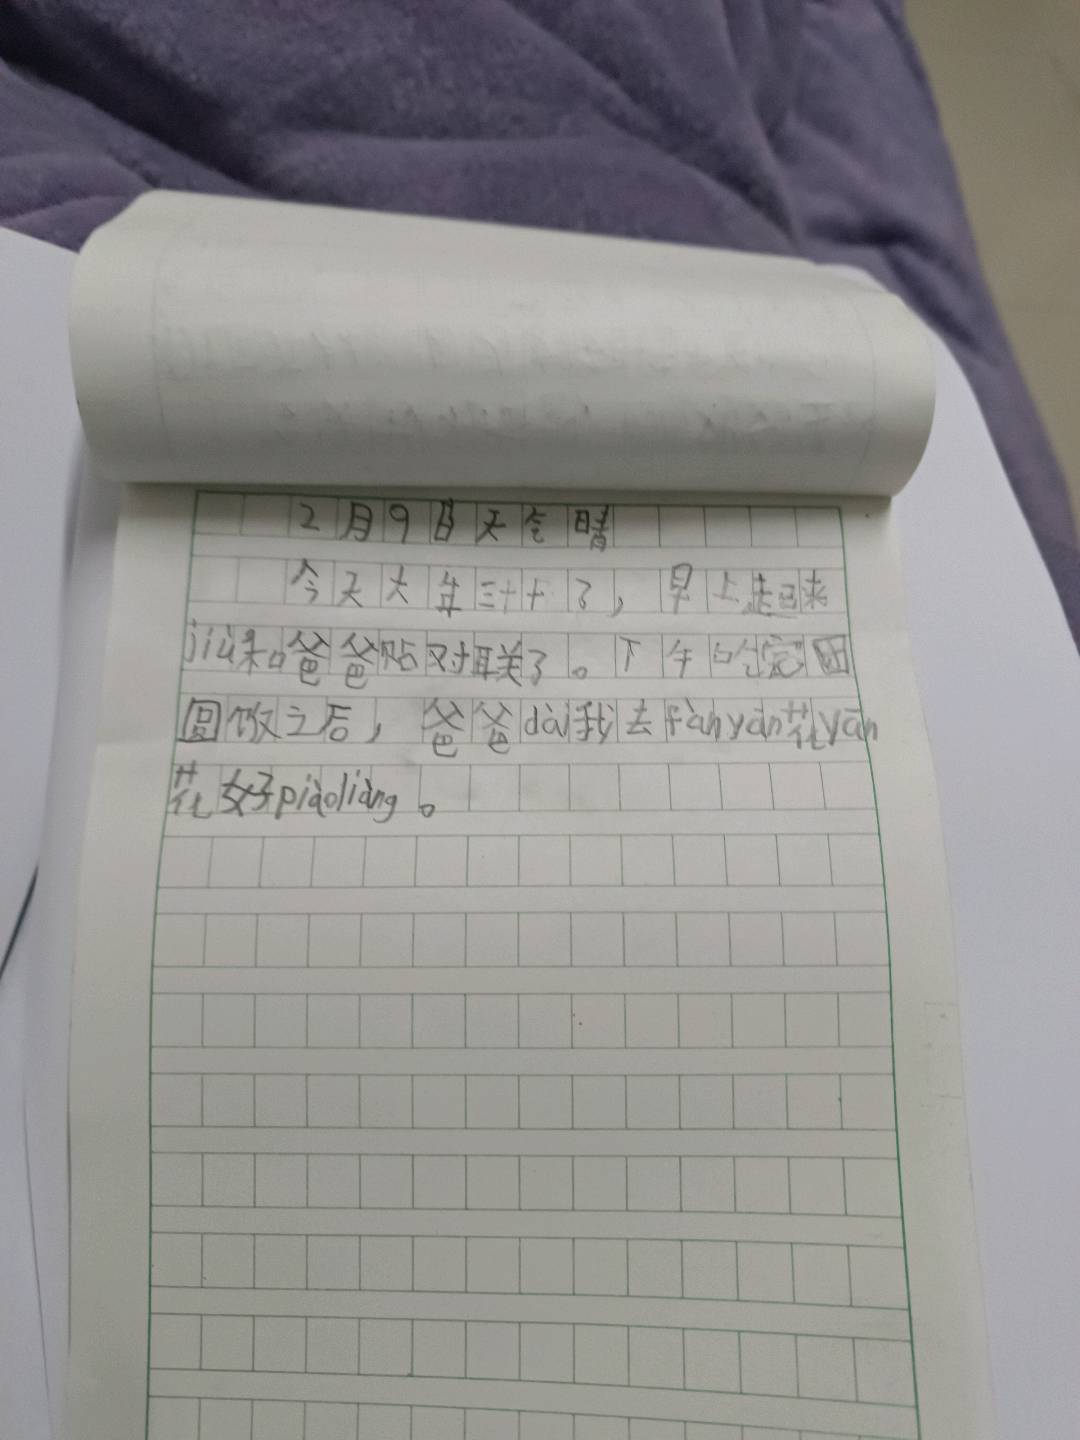 2月9日天气晴
今天大年三十了，早上起来
jiù和爸爸贴对联了。下午吃完团
圆饭之后，爸爸dài我去fàngyān花yān
花好piàoliàng。